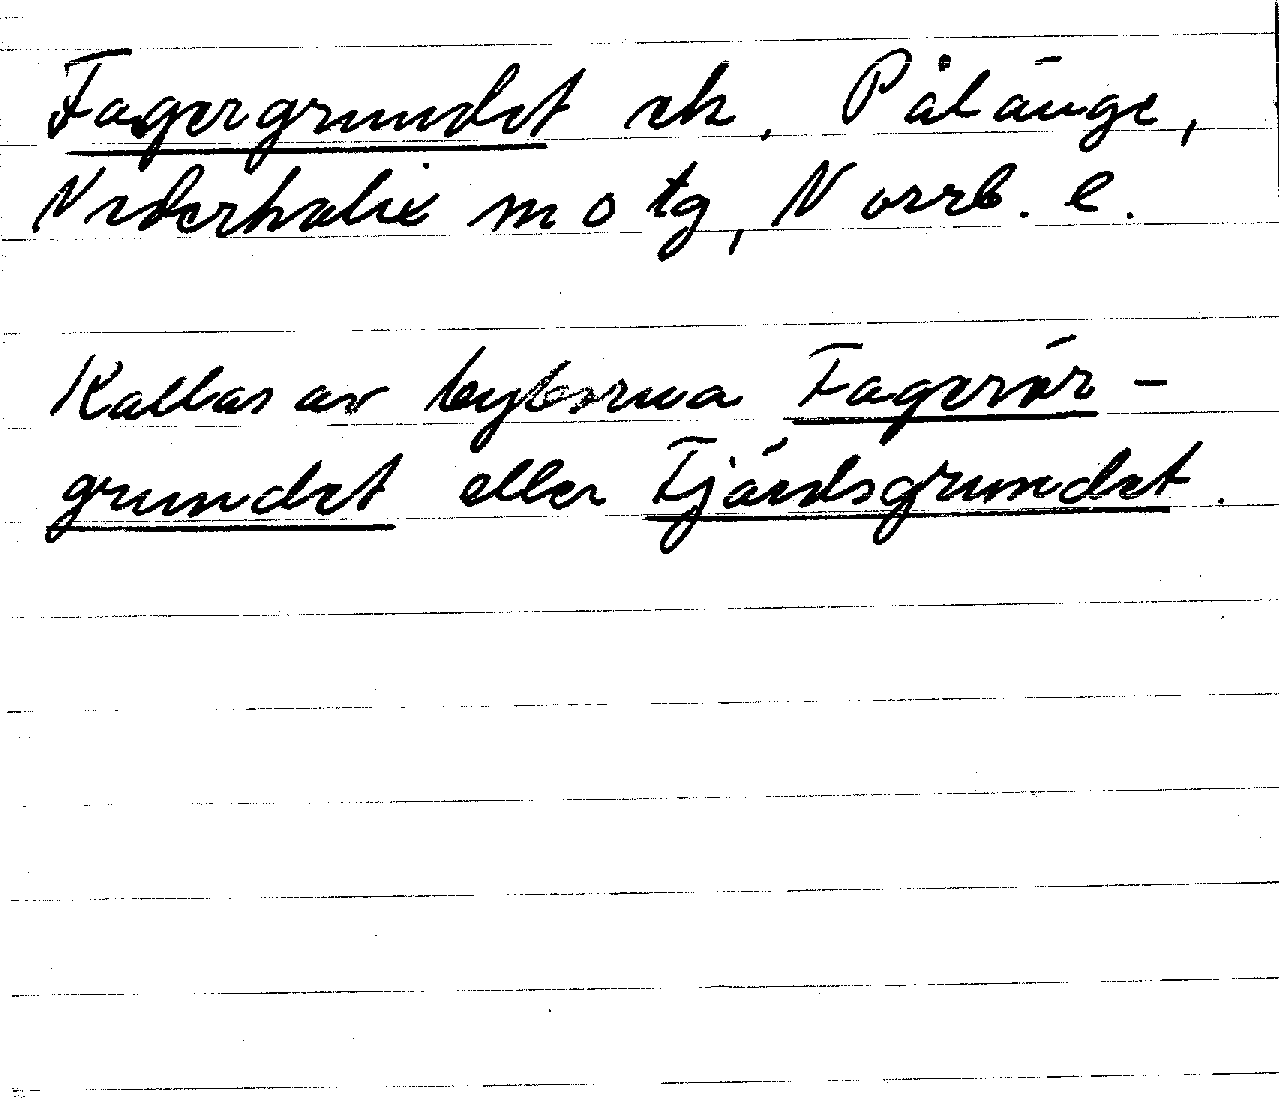 Fagergrundet sk. Pålänge,
Nederkalix motg, Norrb. l.
Kallas av byborna Fagerör-
grundet eller Fjärdsgrundet.